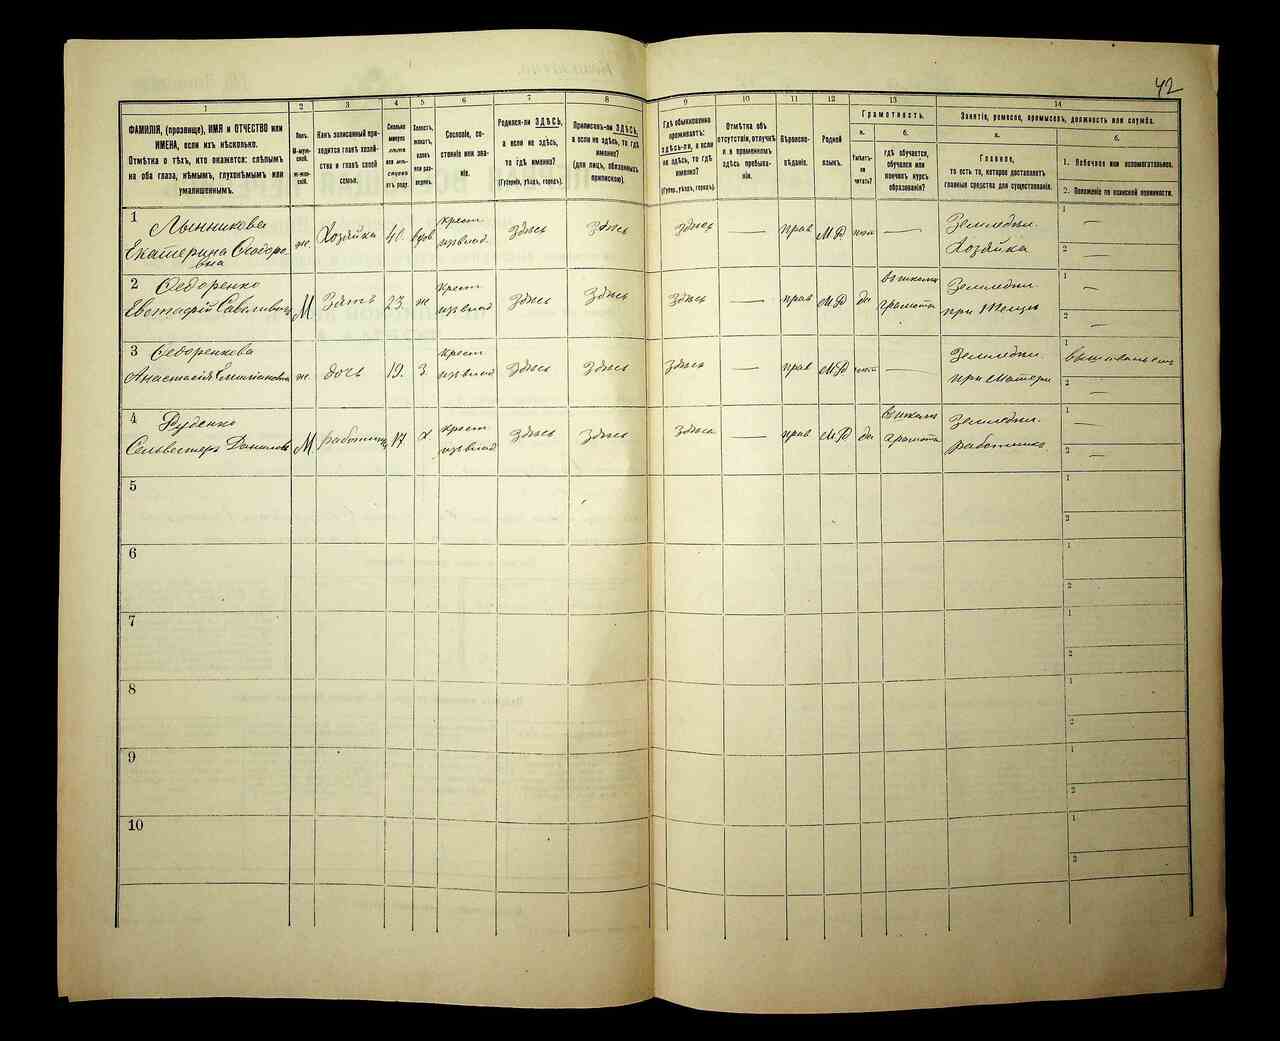 42
1 2 3 4 5 6 7 8 9 10 11 12 13 14
ФАМИЛІЯ, (прозвище), ИМЯ и ОТЧЕСТВО или
ИМЕНА, если ихъ нѣсколько.
Отмѣтка о тѣхъ, кто окажется: слѣпымъ
на оба глаза, нѣмымъ, глухонѣмымъ или
умалишеннымъ.
Полъ.
М-муж-
ской.
ж-жен-
скій.
Какъ записанный при-
ходится главѣ хозяй-
ства и главѣ своей
семьи.
Сколько
минуло
лѣтъ
или мѣ-
сяцевъ
отъ роду.
Холостъ,
женатъ,
вдовъ
или раз-
веденъ.
Сословіе, со-
стояніе или зва-
ніе.
Родился-ли ЗДѢСЬ,
а если не здѣсь,
то гдѣ именно?
(Губернія, уѣздъ, городъ).
Приписанъ-ли ЗДѢСЬ,
а если не здѣсь, то гдѣ
именно?
(для лицъ, обязанныхъ
припискою).
Гдѣ обыкновенно
проживаетъ:
здѣсь-ли, а если
не здѣсь, то гдѣ
именно?
(Губер., уѣздъ, городъ).
Отмѣтка объ
отсутствіи, отлучкѣ
и о временномъ
здѣсь пребыва-
ніи.
Вѣроиспо-
вѣданіе.
Родной
языкъ.
Грамотность.
а.
Умѣетъ-
ли
читать?
б.
гдѣ обучается,
обучался или
кончилъ курсъ
образованія?
Занятіе, ремесло, промыселъ, должность или служба.
а.
Главное,
то есть то, которое доставляетъ
главныя средства для существованія.
б.
1. Побочное или вспомогательное.
2. Положеніе по воинской повинности.
1 Лынникова
Екатерина Ѳеодоро
вна
ж Хозяйка 40. вдов
крест
изъ влад.
Здѣсь Здѣсь Здѣсь — прав М.Р нѣт —
Земледѣл.
Хозяйка
1 —
2 —
2 Ѳедоренко
М Зять 23 ж
крест
изъ влад
Здѣсь Здѣсь Здѣсь — прав М.Р да
въ школѣ
грамота
Земледѣл.
при Тещѣ
1 —
2 —
3 Ѳедоренкова
Анастасія Емеліановна
ж. дочь 19. З.
крест
изъ влад
Здѣсь Здѣсь Здѣсь — прав М.Р нѣт —
Земледѣл.
при матери
1
2 —
4 Руденко
Сельвестеръ Данилов
М работник 17 х
крест
изъ влад
Здѣсь Здѣсь Здѣсь — прав М.Р да
въ школѣ
грамота
Земледѣл.
работникъ
1 —
2 —
5 1
2
6 1
2
7 1
2
8 1
2
9 1
2
10 1
2